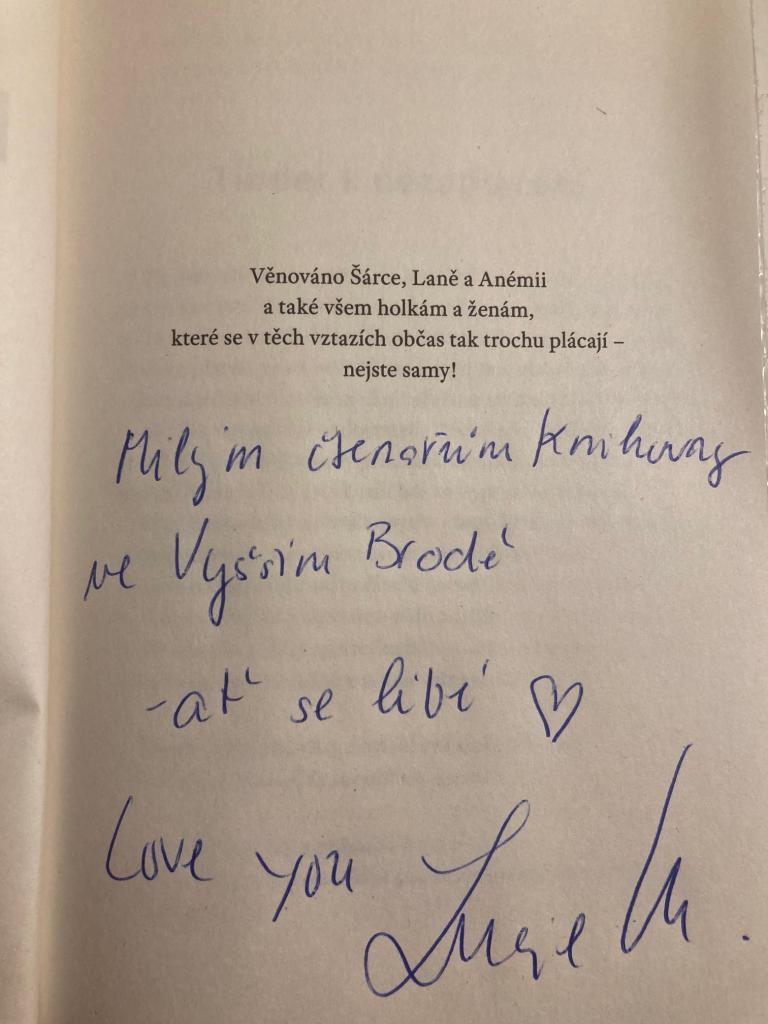 Věnováno Šárce, Laně a Anémii
a také všem holkám a ženám,
které se v těch vztazích občas tak trochu plácají –
nejste samy!
Milým čtenářům knihovny
ve Vyšším Brodě
-ať se líbí ♡
Love you Lucie